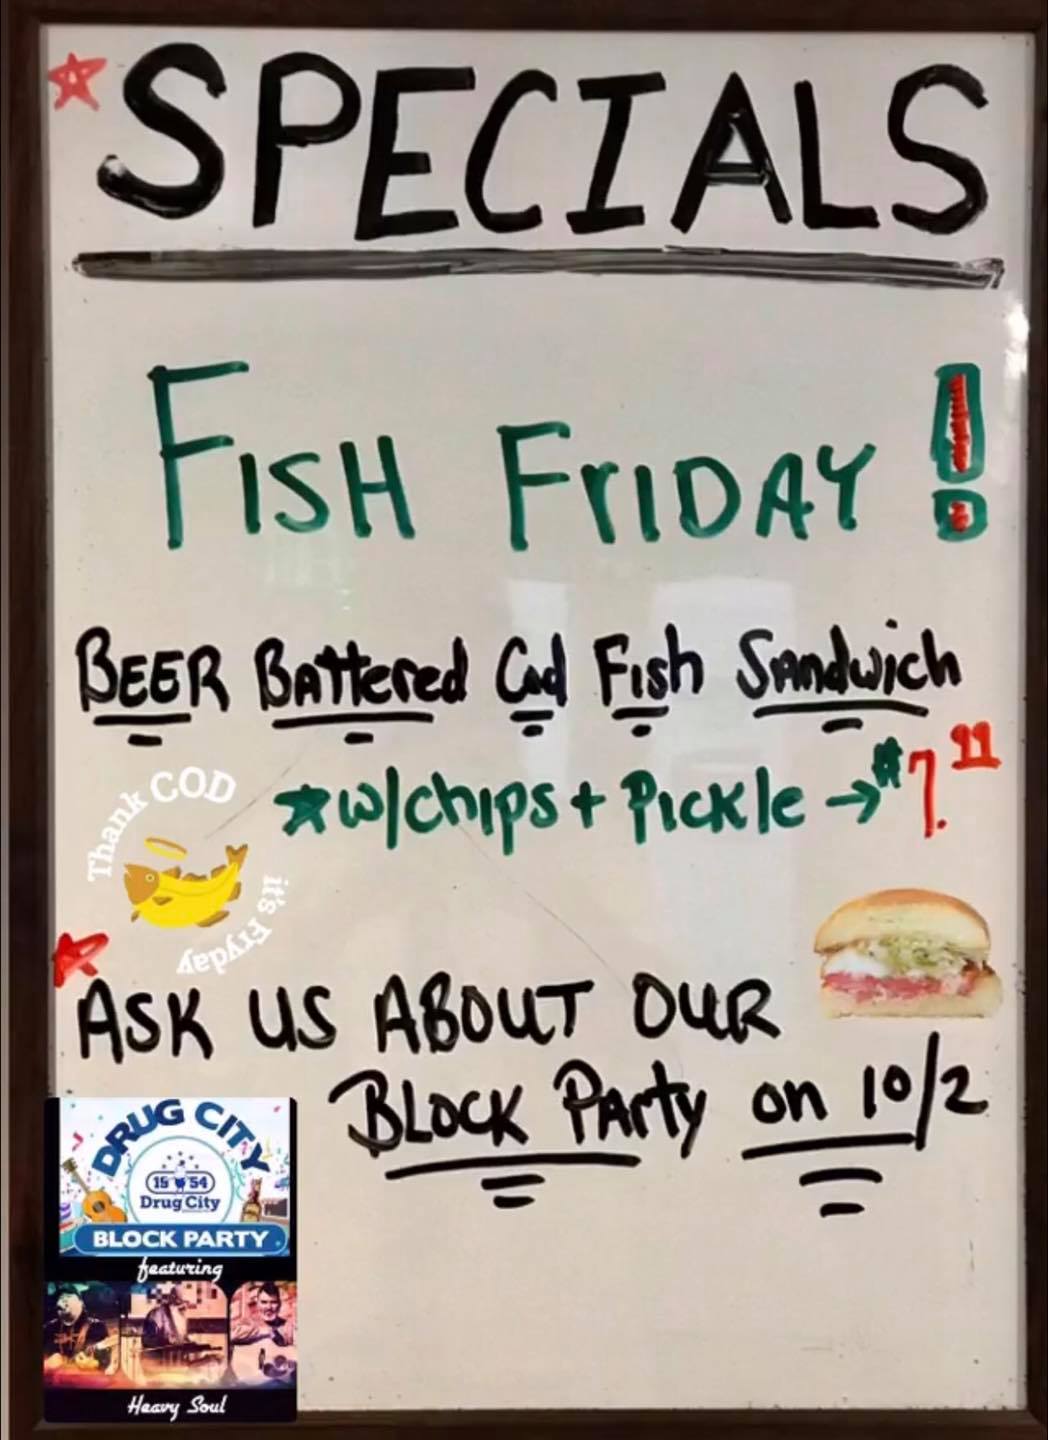 SPECIALS
FISH FRIDAY!
BEER BAttered Cod Fish SAndwich
w/chips + Pickle → $7.99
Thank COD
it's Fryday
ASK US ABOUT OUR
BLOCK PArty on 10/2
DRUG CITY
19 54
Drug City
BLOCK PARTY
featuring
Heavy Soul